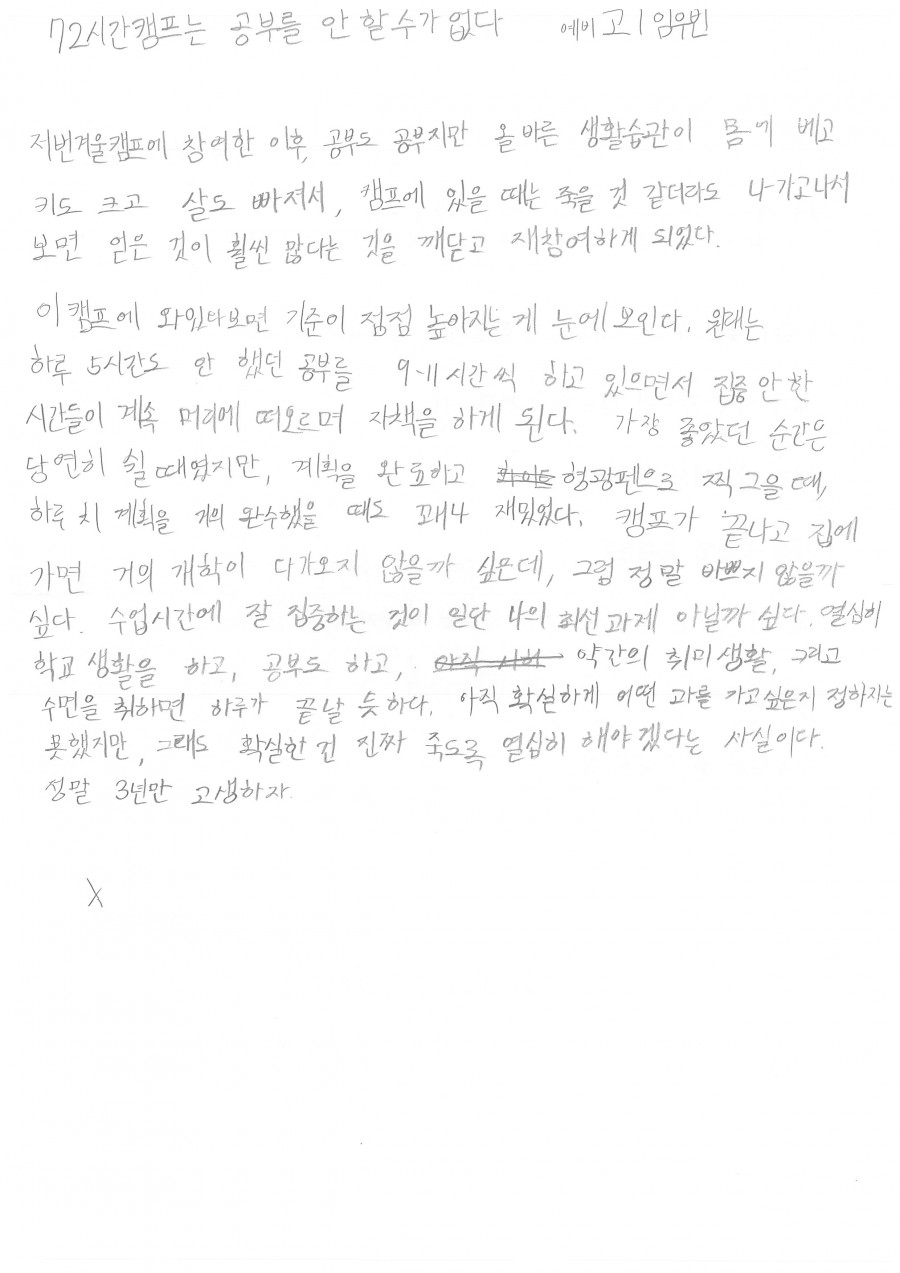 72시간캠프는 공부를 안 할 수가 없다 예비 고1 임우빈
저번겨울캠프에 참여한 이후, 공부도 공부지만 올바른 생활습관이 몸에 베고
키도 크고 살도 빠져서, 캠프에 있을 때는 죽을 것 같더라도 나가고나서
보면 얻은 것이 훨씬 많다는 것을 깨닫고 재참여하게 되었다.
이 캠프에 와있다보면 기준이 점점 높아지는 게 눈에 보인다. 원래는
하루 5시간도 안 했던 공부를 9-11시간씩 하고 있으면서 집중 안 한
시간들이 계속 머리에 떠오르며 자책을 하게 된다. 가장 좋았던 순간은
당연히 쉴 때였지만, 계획을 완료하고 형광펜으로 찍 그을 때,
하루 치 계획을 거의 완수했을 때도 꽤나 재밌었다. 캠프가 끝나고 집에
가면 거의 개학이 다가오지 않을까 싶은데, 그럼 정말 바쁘지 않을까
싶다. 수업시간에 잘 집중하는 것이 일단 나의 최선 과제 아닐까 싶다. 열심히
학교 생활을 하고, 공부도 하고, 약간의 취미 생활, 그리고
수면을 취하면 하루가 끝날 듯하다. 아직 확실하게 어떤 과를 가고싶은지 정하지는
못했지만, 그래도 확실한 건 진짜 죽도록 열심히 해야겠다는 사실이다.
정말 3년만 고생하자.
X